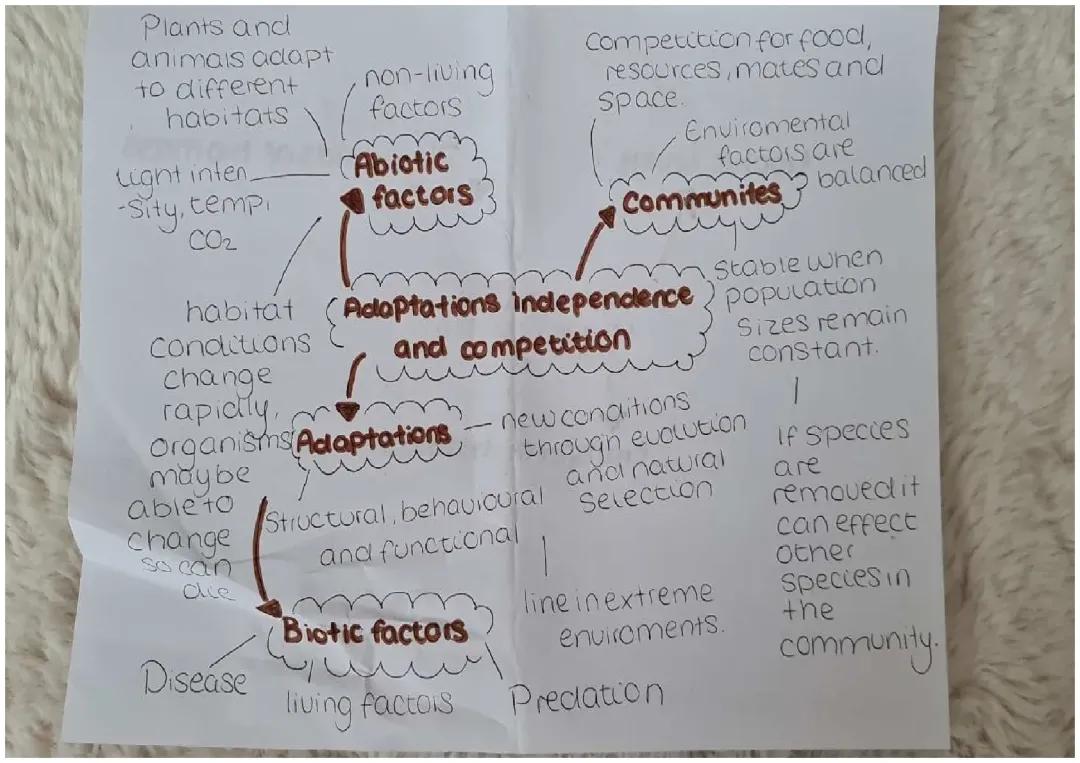 Plants and
animals adapt
to different
habitats
non-living
factors
Abiotic
factors
Light inten
-sity, temp,
CO₂
habitat
conditions
change
rapidly,
organisms
maybe
able to
change
so can
die
Competition for food,
resources, mates and
space.
Enviromental
factors are
balanced
Communites
Stable when
population
sizes remain
constant.
If species
are
removed it
can effect
other
species in
the
community.
Adaptations independence
and competition
Adaptations
new conditions
through evolution
and natural
selection
Structural, behavioural
and functional
line in extreme
enviroments.
Biotic factors
Disease
living factors
Predation